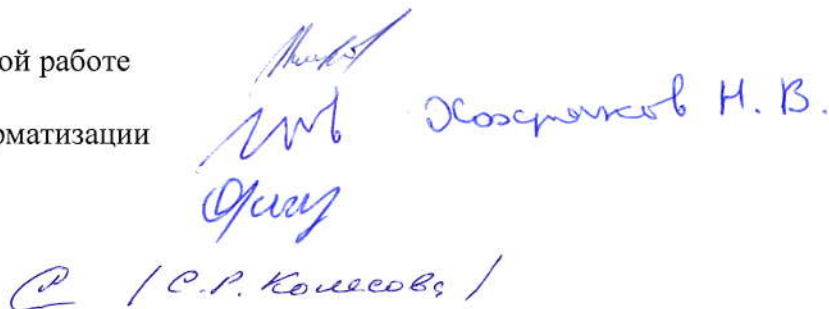 ой работе
рматизации Хохрячков Н. В.
/ С.Р. Колесова /